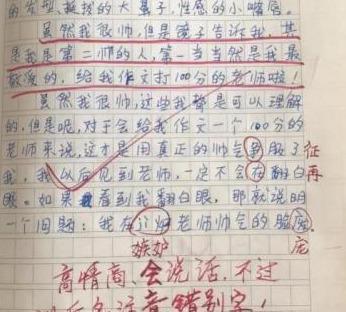 的发型,挺拔的大鼻子,性感的小嘴唇。
虽然我很帅,但是镜子告诉我,其
是我是第二帅的人,第一当当然是我最
敬爱的,给我作文打100分的老师啦!
虽然我很帅,这些我都是可以理解
的,但是呢,对于会给我作文一个100分的
老师来说,这才是用真正的帅气争服了 征
我,我以后见到老师,一定不会在翻白 再
眼。如果看到我翻白眼,那就说明
一个问题:我在计护老师帅气的脸庞。
嫉妒 庞
高情商,会说话,不过
以后多注意错别字!